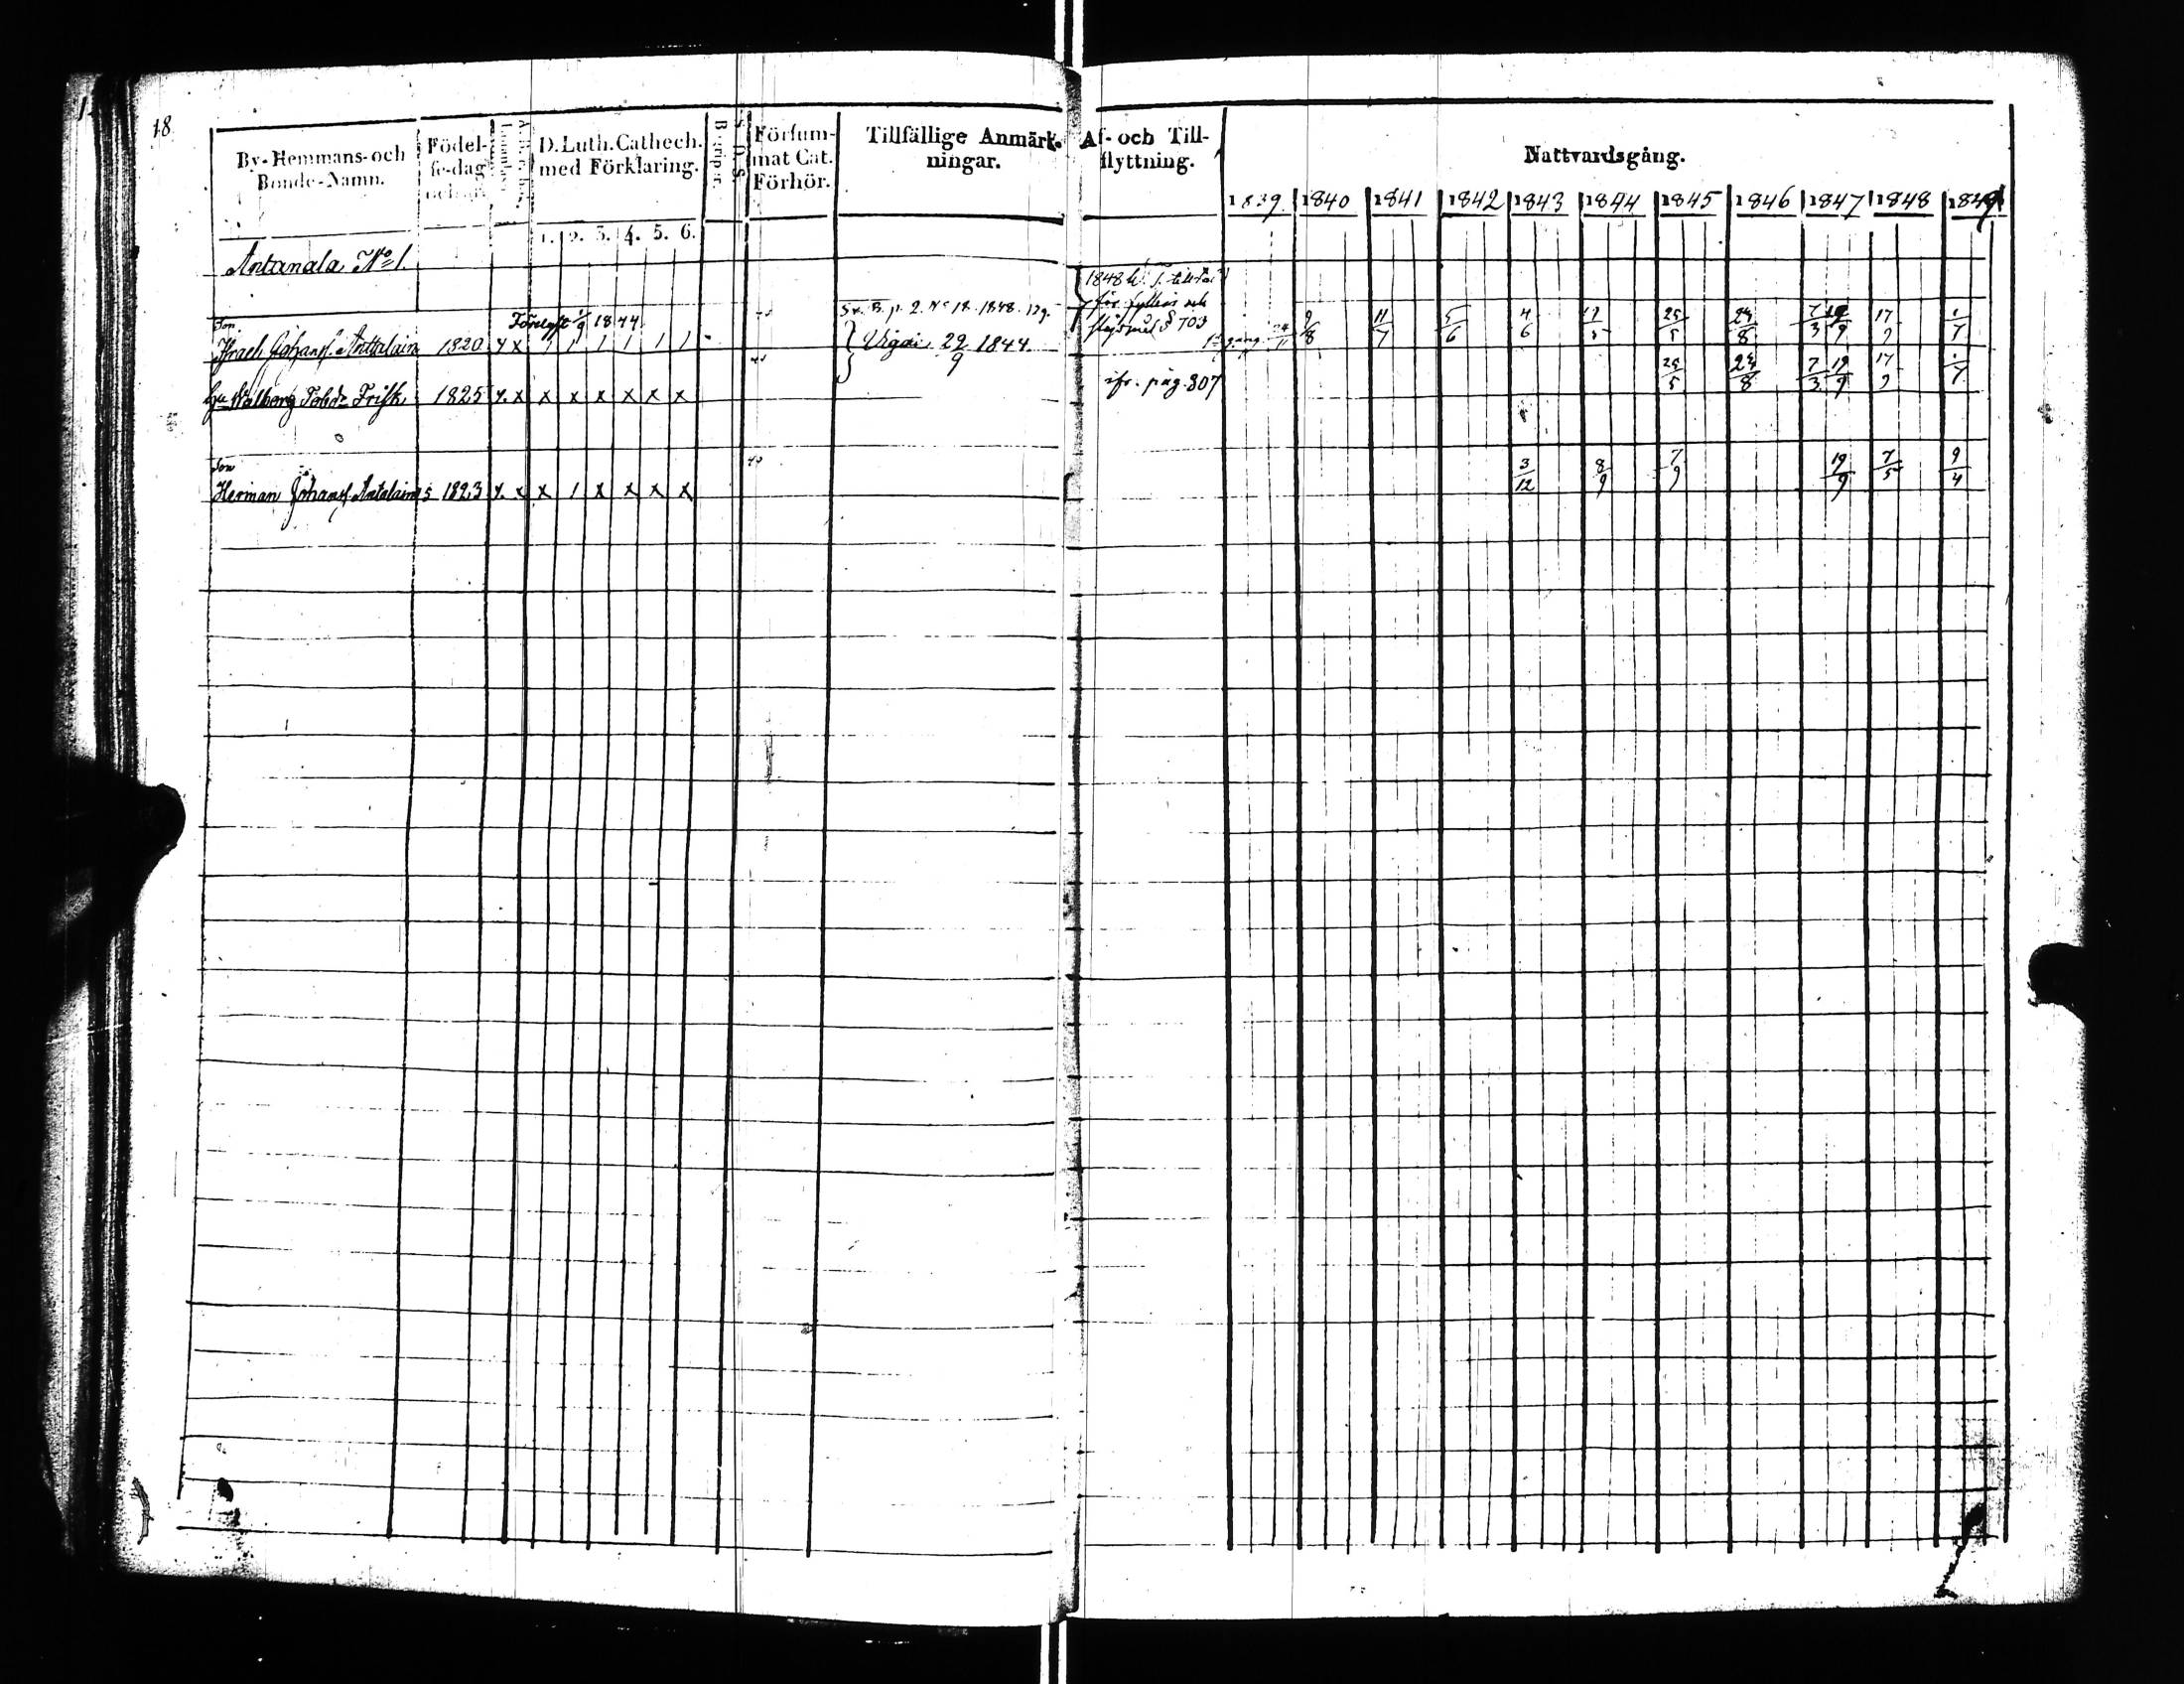 18
By-Hemmans- och Bonde-Namn.
Födel-
se-dag
och år.
D. Luth. Cathech.
med Förklaring.
1. 2. 3. 4. 5. 6.
Försum-
mat Cat.
Förhör.
Tillfällige Anmärk-
ningar.
Af- och Till-
flyttning.
Nattvardsgång.
1839. 1840 1841 1842 1843 1844 1845 1846 1847 1848 1849
Antanala No 1.
1848
för fylleri och
§ 703
Sv. B. p. 2. No 18. 1848.
Son
1844
Israel Johansf. Anttalain 1820 x 1 1 1 1 1 1
Vigde 29/9 1844.
9/8 11/7 5/6 4/6 25/5 24/8 7/3 19/9 17/9 1/7
Hu Walborg Tobd:r Frisk 1825 x x x x x x x
ifr. pag. 307
25/5 24/8 7/3 19/9 17/9 1/7
Son
Herman Johansf. Antalain 1823 x x x 1 x x x x
3/12 8/9 7/9 19/9 7/5 9/4